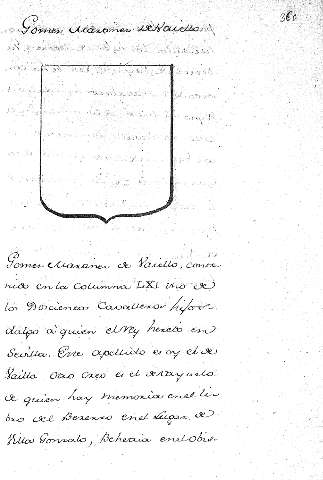 360
Gomes Maxanes de Vaiello.
Gomes Maxanes de Vaiello, conte
nido en la Columna LXI uno de
los Doscientos Cavalleros hijos
dalgo à quien el Rey heredó en
Sevilla. Este apellido es oy el de
Vaillo otro creo es el de
de quien hay memoria en el li-
bro del Bezerro en el Lugar de
Villa Gonzalo, Behetria en el obis-